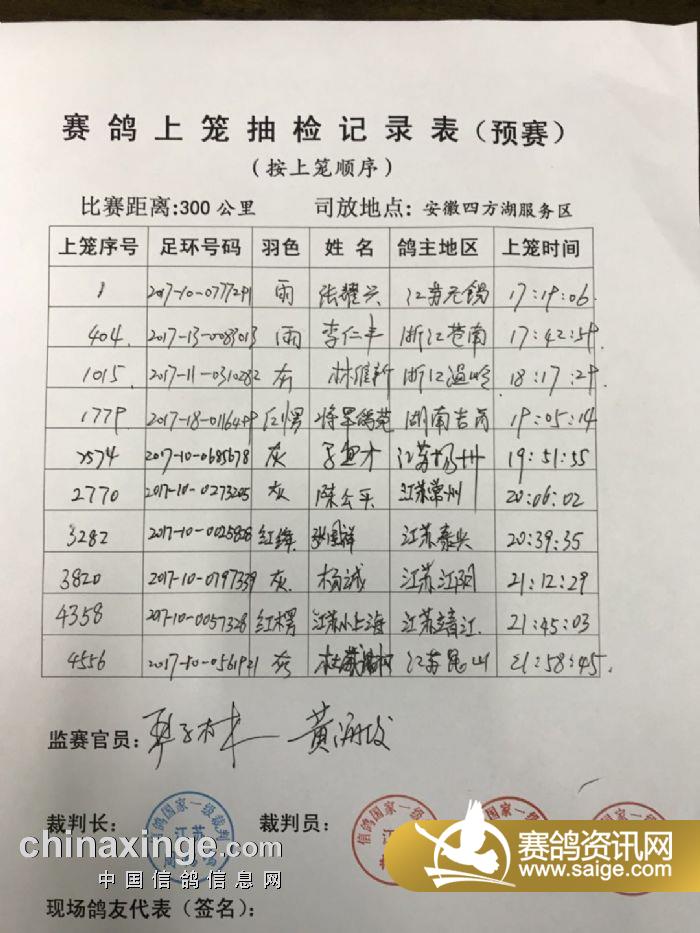 赛鸽上笼抽检记录表(预赛)
(按上笼顺序)
比赛距离:300公里 司放地点: 安徽四方湖服务区
上笼序号 足环号码 羽色 姓名 鸽主地区 上笼时间
1 2017-10-0777291 雨 张耀兴 江苏无锡 17:19:06
404. 2017-13-0083013 雨 李仁丰 浙江苍南 17:42:59
1015. 2017-11-0310282 灰 林维新 浙江温岭 18:17:29
1779. 2017-18-0116499 湖南 19:05:14
2574 2017-10-0685678 灰 江苏扬州 19:51:55
2770 2017-10-0273205 灰 陈公平 江苏常州 20:06:02
3282 2017-10-0025828 红绛 张国祥 江苏泰兴 20:39:35
3820 2017-10-0797339 灰 杨诚 江苏江阴 21:12:29
4358 2017-10-0057328 红楞 江苏小上海 江苏靖江. 21:45:03
4556 2017-10-0561921 灰 江苏昆山 21:58:45.
监赛官员: 黄
裁判长: 裁判员:
信鸽国家一级裁判
信鸽国家一级裁
江苏
chinaxinge.com
中国信鸽信息网
赛鸽资讯网
www.saige.com
现场鸽友代表(签名):